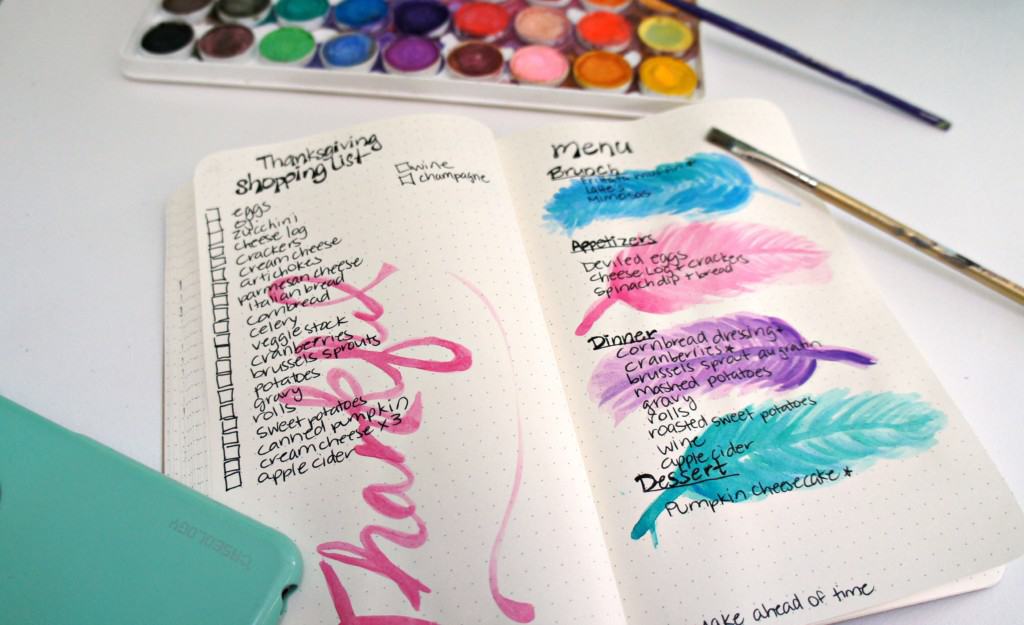 Thanksgiving
shopping List
wine
champagne
eggs
oj
zucchini
cheese log
crackers
cream cheese
artichokes
parmesan cheese
italian bread
cornbread
celery
veggie stock
cranberries
brussels sprouts
potatoes
gravy
rolls
sweet potatoes
canned pumpkin
cream cheese x3
apple cider
Thankful
menu
Brunch
mimosas
Appetizers
Deviled eggs
cheese Log + crackers
spinach dip + bread
Dinner
cornbread dressing*
cranberries*
brussels sprout au gratin
mashed potatoes
gravy
rolls
roasted sweet potatoes
wine
apple cider
Dessert
Pumpkin cheesecake *
make ahead of time
CASEOLOGY